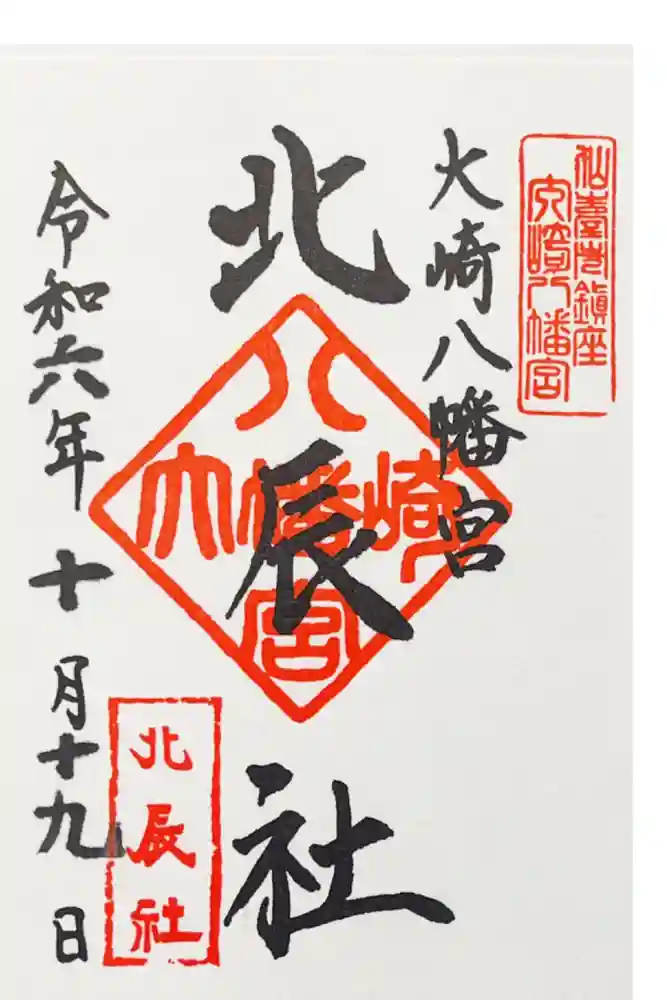 仙臺市鎮座
大崎八幡宮
大崎八幡宮
北辰社
八
大幡崎
宮
令和六年十月十九日
北辰社